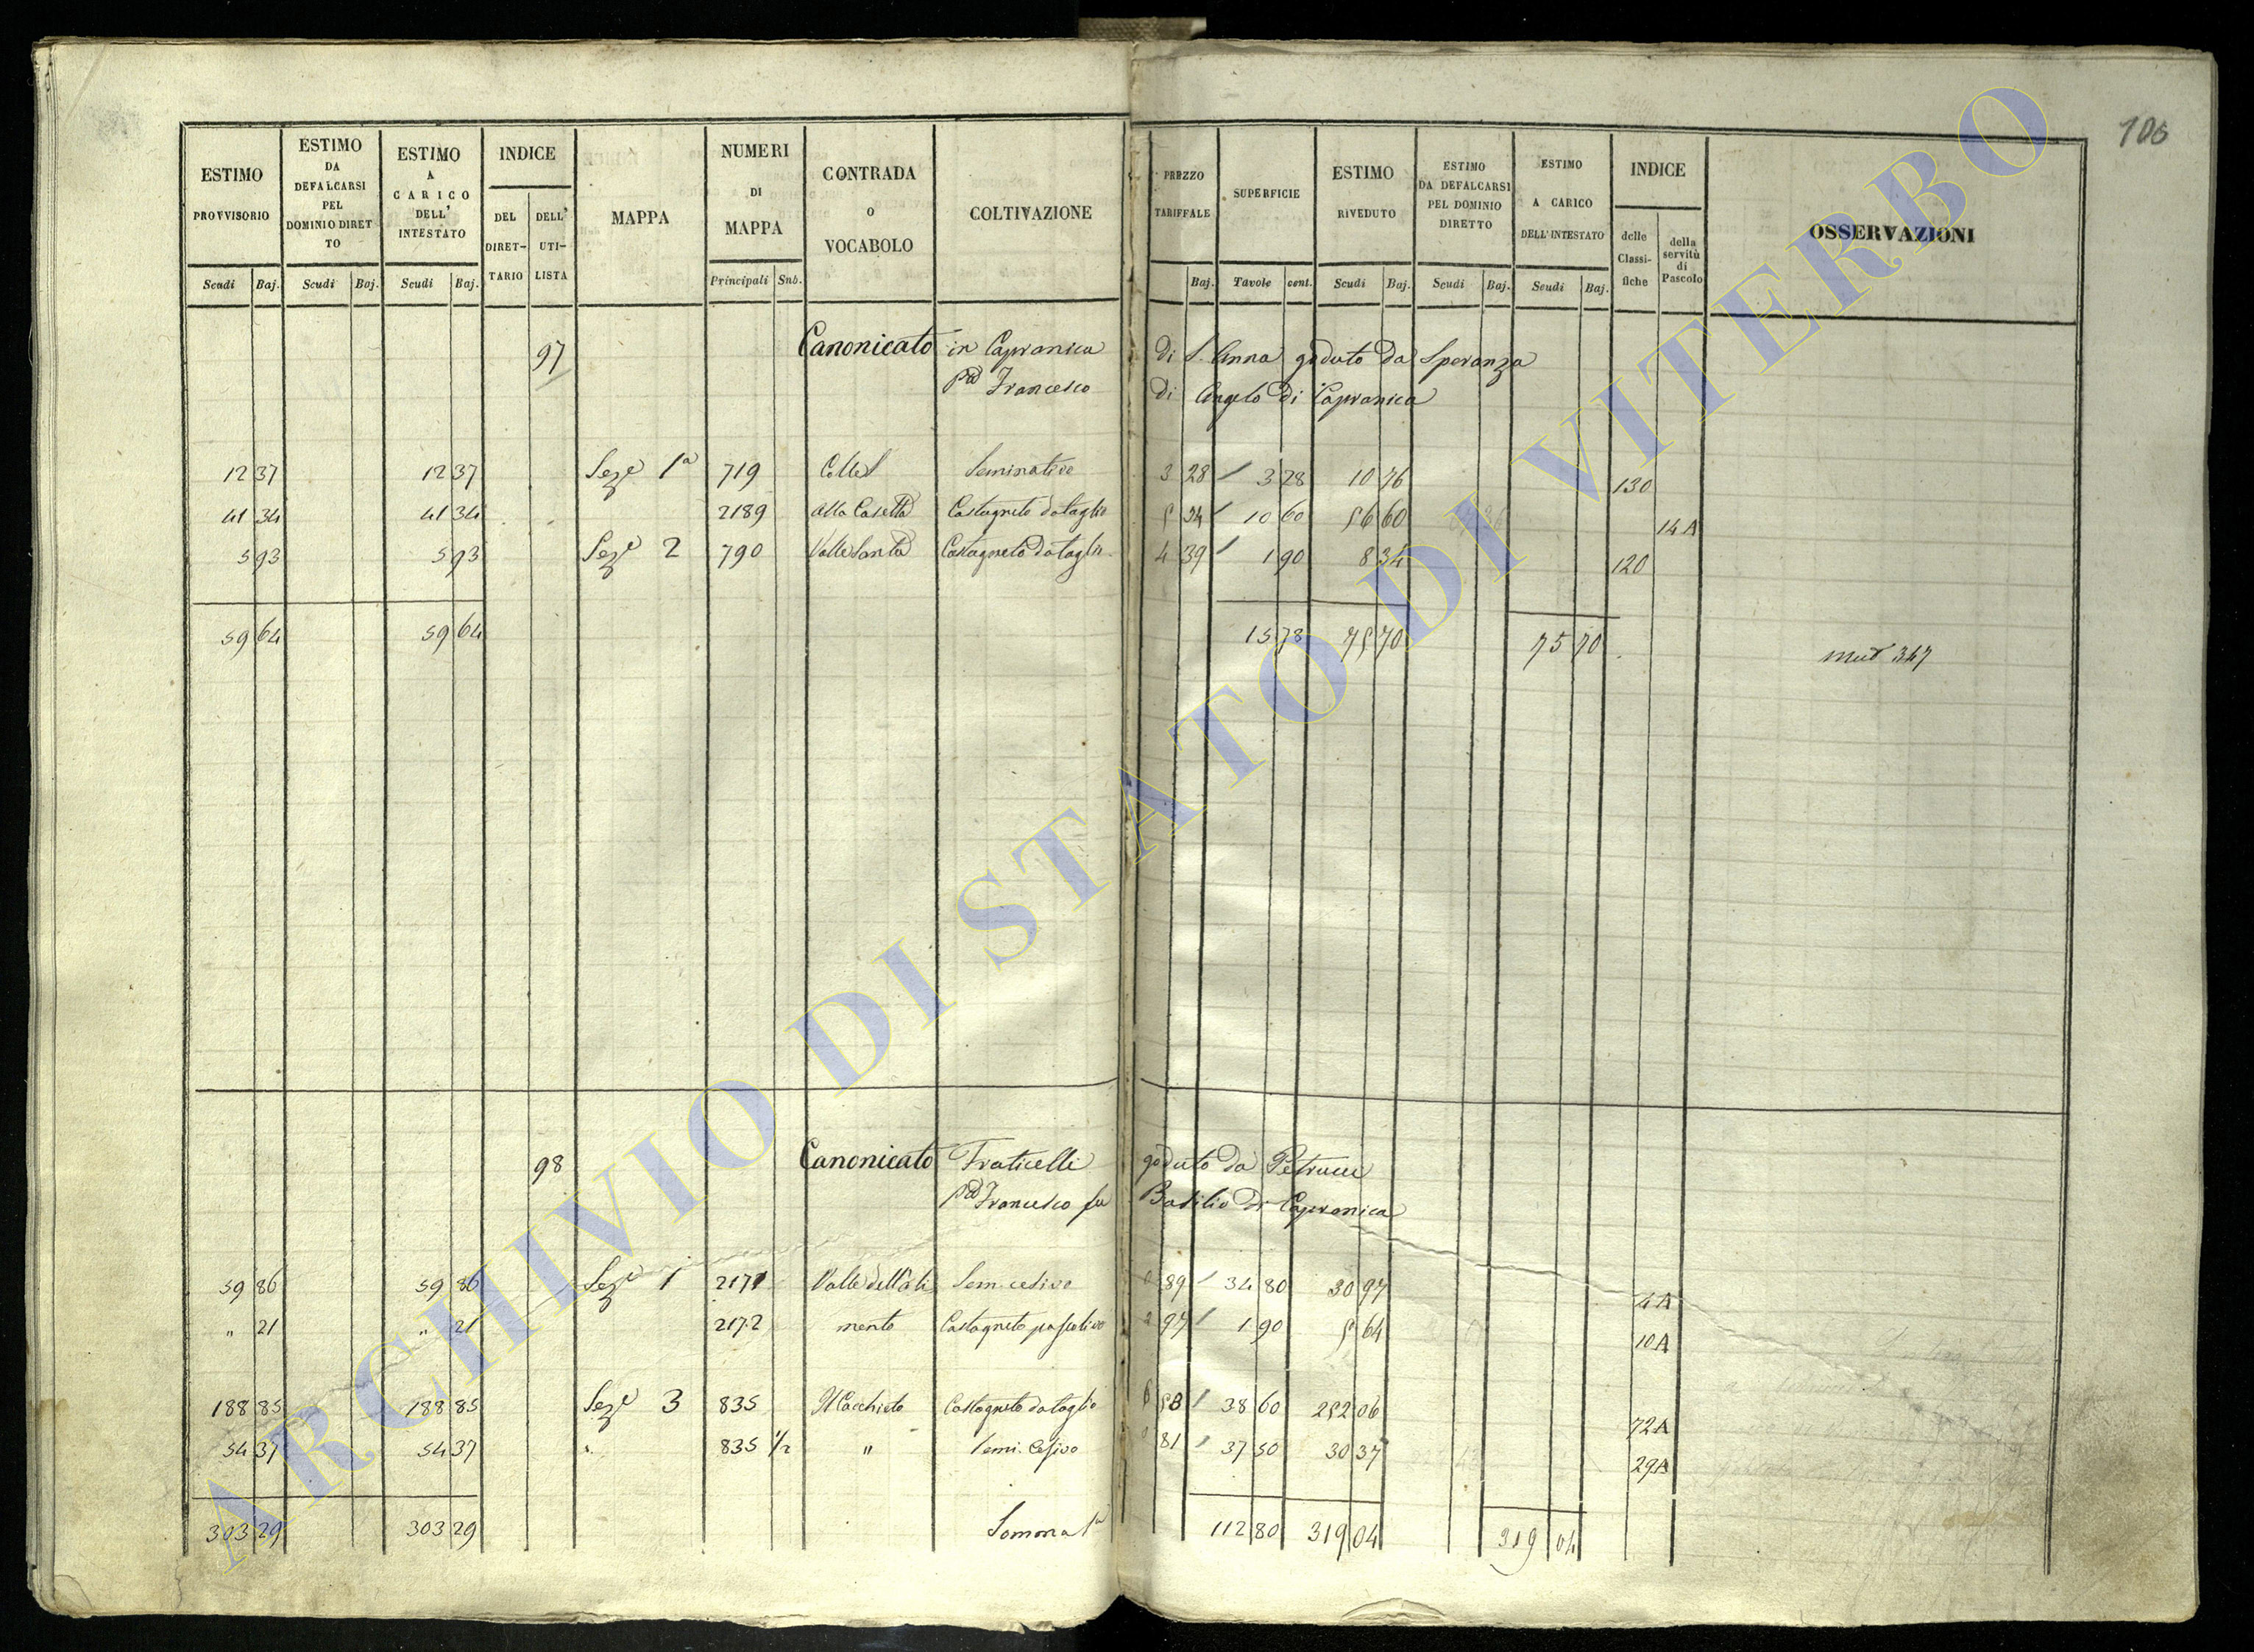 106
ESTIMO PROVVISORIO
ESTIMO DA DEFALCARSI PEL DOMINIO DIRETTO
ESTIMO A CARICO DELL' INTESTATO
INDICE
DEL DIRETTARIO
DELL' UTILISTA
MAPPA
NUMERI DI MAPPA
CONTRADA O VOCABOLO
COLTIVAZIONE
PREZZO TARIFFALE
SUPERFICIE
ESTIMO RIVEDUTO
ESTIMO DA DEFALCARSI PEL DOMINIO DIRETTO
ESTIMO A CARICO DELL' INTESTATO
INDICE
delle Classifiche
della servitù di Pascolo
OSSERVAZIONI
Scudi Baj. Scudi Baj. Scudi Baj. Principali Sub. Baj. Tavole cent. Scudi Baj. Scudi Baj. Scudi Baj.
97 Canonicato in Capranica di S. Anna goduto da Speranza
Francesco di Angelo di Capranica
12 37 12 37 Seze 1a 719 Colle S Seminativo 3 28 3 28 10 76 130
41 34 41 34 2189 Alla Casetta Castagneto da taglio 5 34 10 60 56 60 14 A
5 93 5 93 Seze 2 790 Valle Santa Castagneto da taglio 4 39 1 90 8 34 120
59 64 59 64 15 78 75 70 75 70
Mut 347
98 Canonicato Fraticelli goduto da Petrucci
Francesco fu Basilio di Capranica
59 86 59 86 Seze 1 2171 Sem. cesivo 89 34 80 30 97 4 A
" 21 " 21 2172 mento Castagneto pascolivo 2 97 1 90 5 64 10 A
188 85 188 85 Seze 3 835 Castagneto da taglio 6 53 38 60 252 06 72 A
54 37 54 37 " 835 1/2 " Semi. Cesivo 81 37 50 30 37 29 A
303 29 303 29 Somma 1a 112 80 319 04 319 04
ARCHIVIO DI STATO DI VITERBO